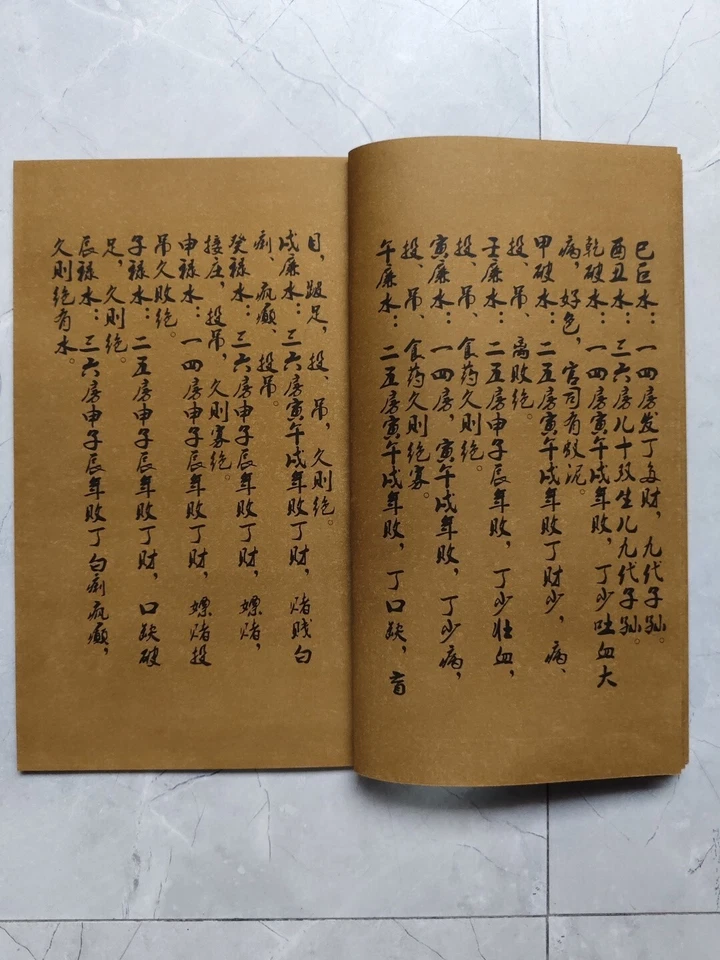 巳巨水：一四房发丁多财，九代子孙。
酉丑水：三六房儿十双生儿九代子孙。
乾破水：一四房寅午戌年败，丁少吐血大
病，好色，官司有蚁泥。
甲破水：二五房寅午戌年败丁财少，病、
投、吊、离败绝。
壬廉水：二五房申子辰年败，丁少壮血，
投、吊、食药久则绝。
寅廉水：一四房，寅午戌年败，丁少病，
投、吊、食药久则绝寡。
午廉水：二五房寅午戌年败，丁口缺，盲
目，跛足，投、吊，久则绝。
戌廉水：三六房寅午戌年败丁财，赌贱白
痢、疯癫，投吊。
癸禄水：三六房申子辰年败丁财，嫖赌，
接庄，投吊，久则寡绝。
申禄水：一四房申子辰年败丁财，嫖赌投
吊久败绝。
子禄水：二五房申子辰年败丁财，口缺破
足，久则绝。
辰禄水：三六房申子辰年败丁白痢疯癫，
久则绝有水。